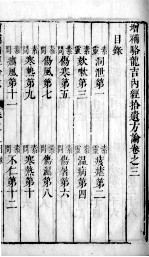 增補駱龍吉內經拾遺方論卷之三
目錄
洞泄第一
第二
欬嗽第三
溫病第四
傷寒第五
傷暑第六
傷風第七
傷濕第八
寒熱第九
寒熱第十
風第十一
不仁第十二